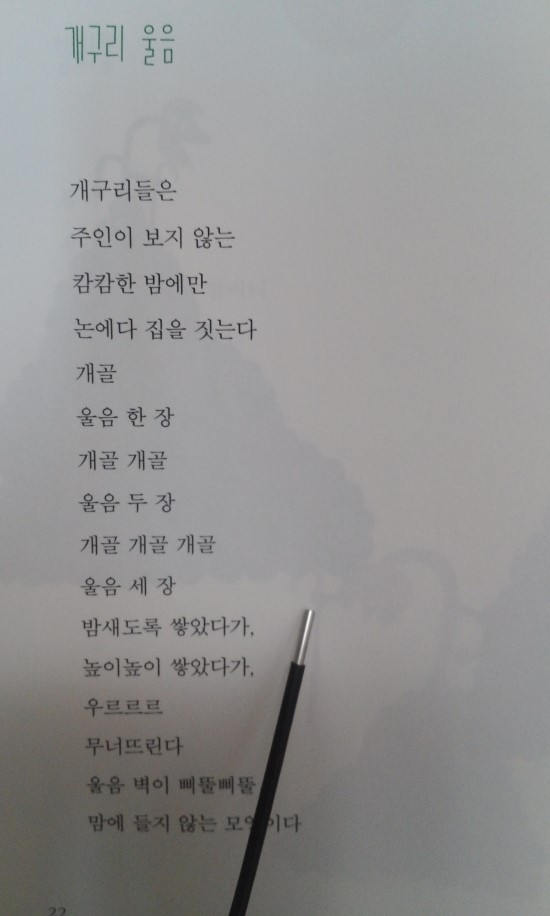 개구리 울음
개구리들은
주인이 보지 않는
캄캄한 밤에만
논에다 집을 짓는다
개골
울음 한 장
개골 개골
울음 두 장
개골 개골 개골
울음 세 장
밤새도록 쌓았다가,
높이높이 쌓았다가,
우르르르
무너뜨린다
울음 벽이 삐뚤삐뚤
맘에 들지 않는 모양이다
22